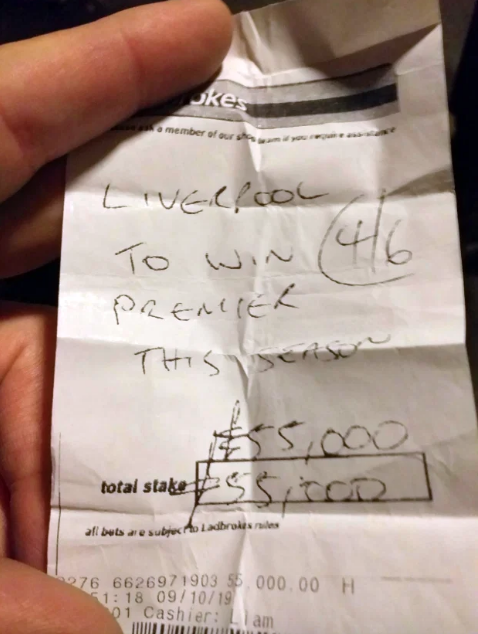 okes
ask a member of our shop team if you require assistance
LIVERPOOL
TO WIN 4/6
PREMIER
THIS SEASON
£55,000
total stake £55,000
all bets are subject to Ladbrokes rules
0276 6626971903 55,000.00 H
51:18 09/10/19
01 Cashier: Liam